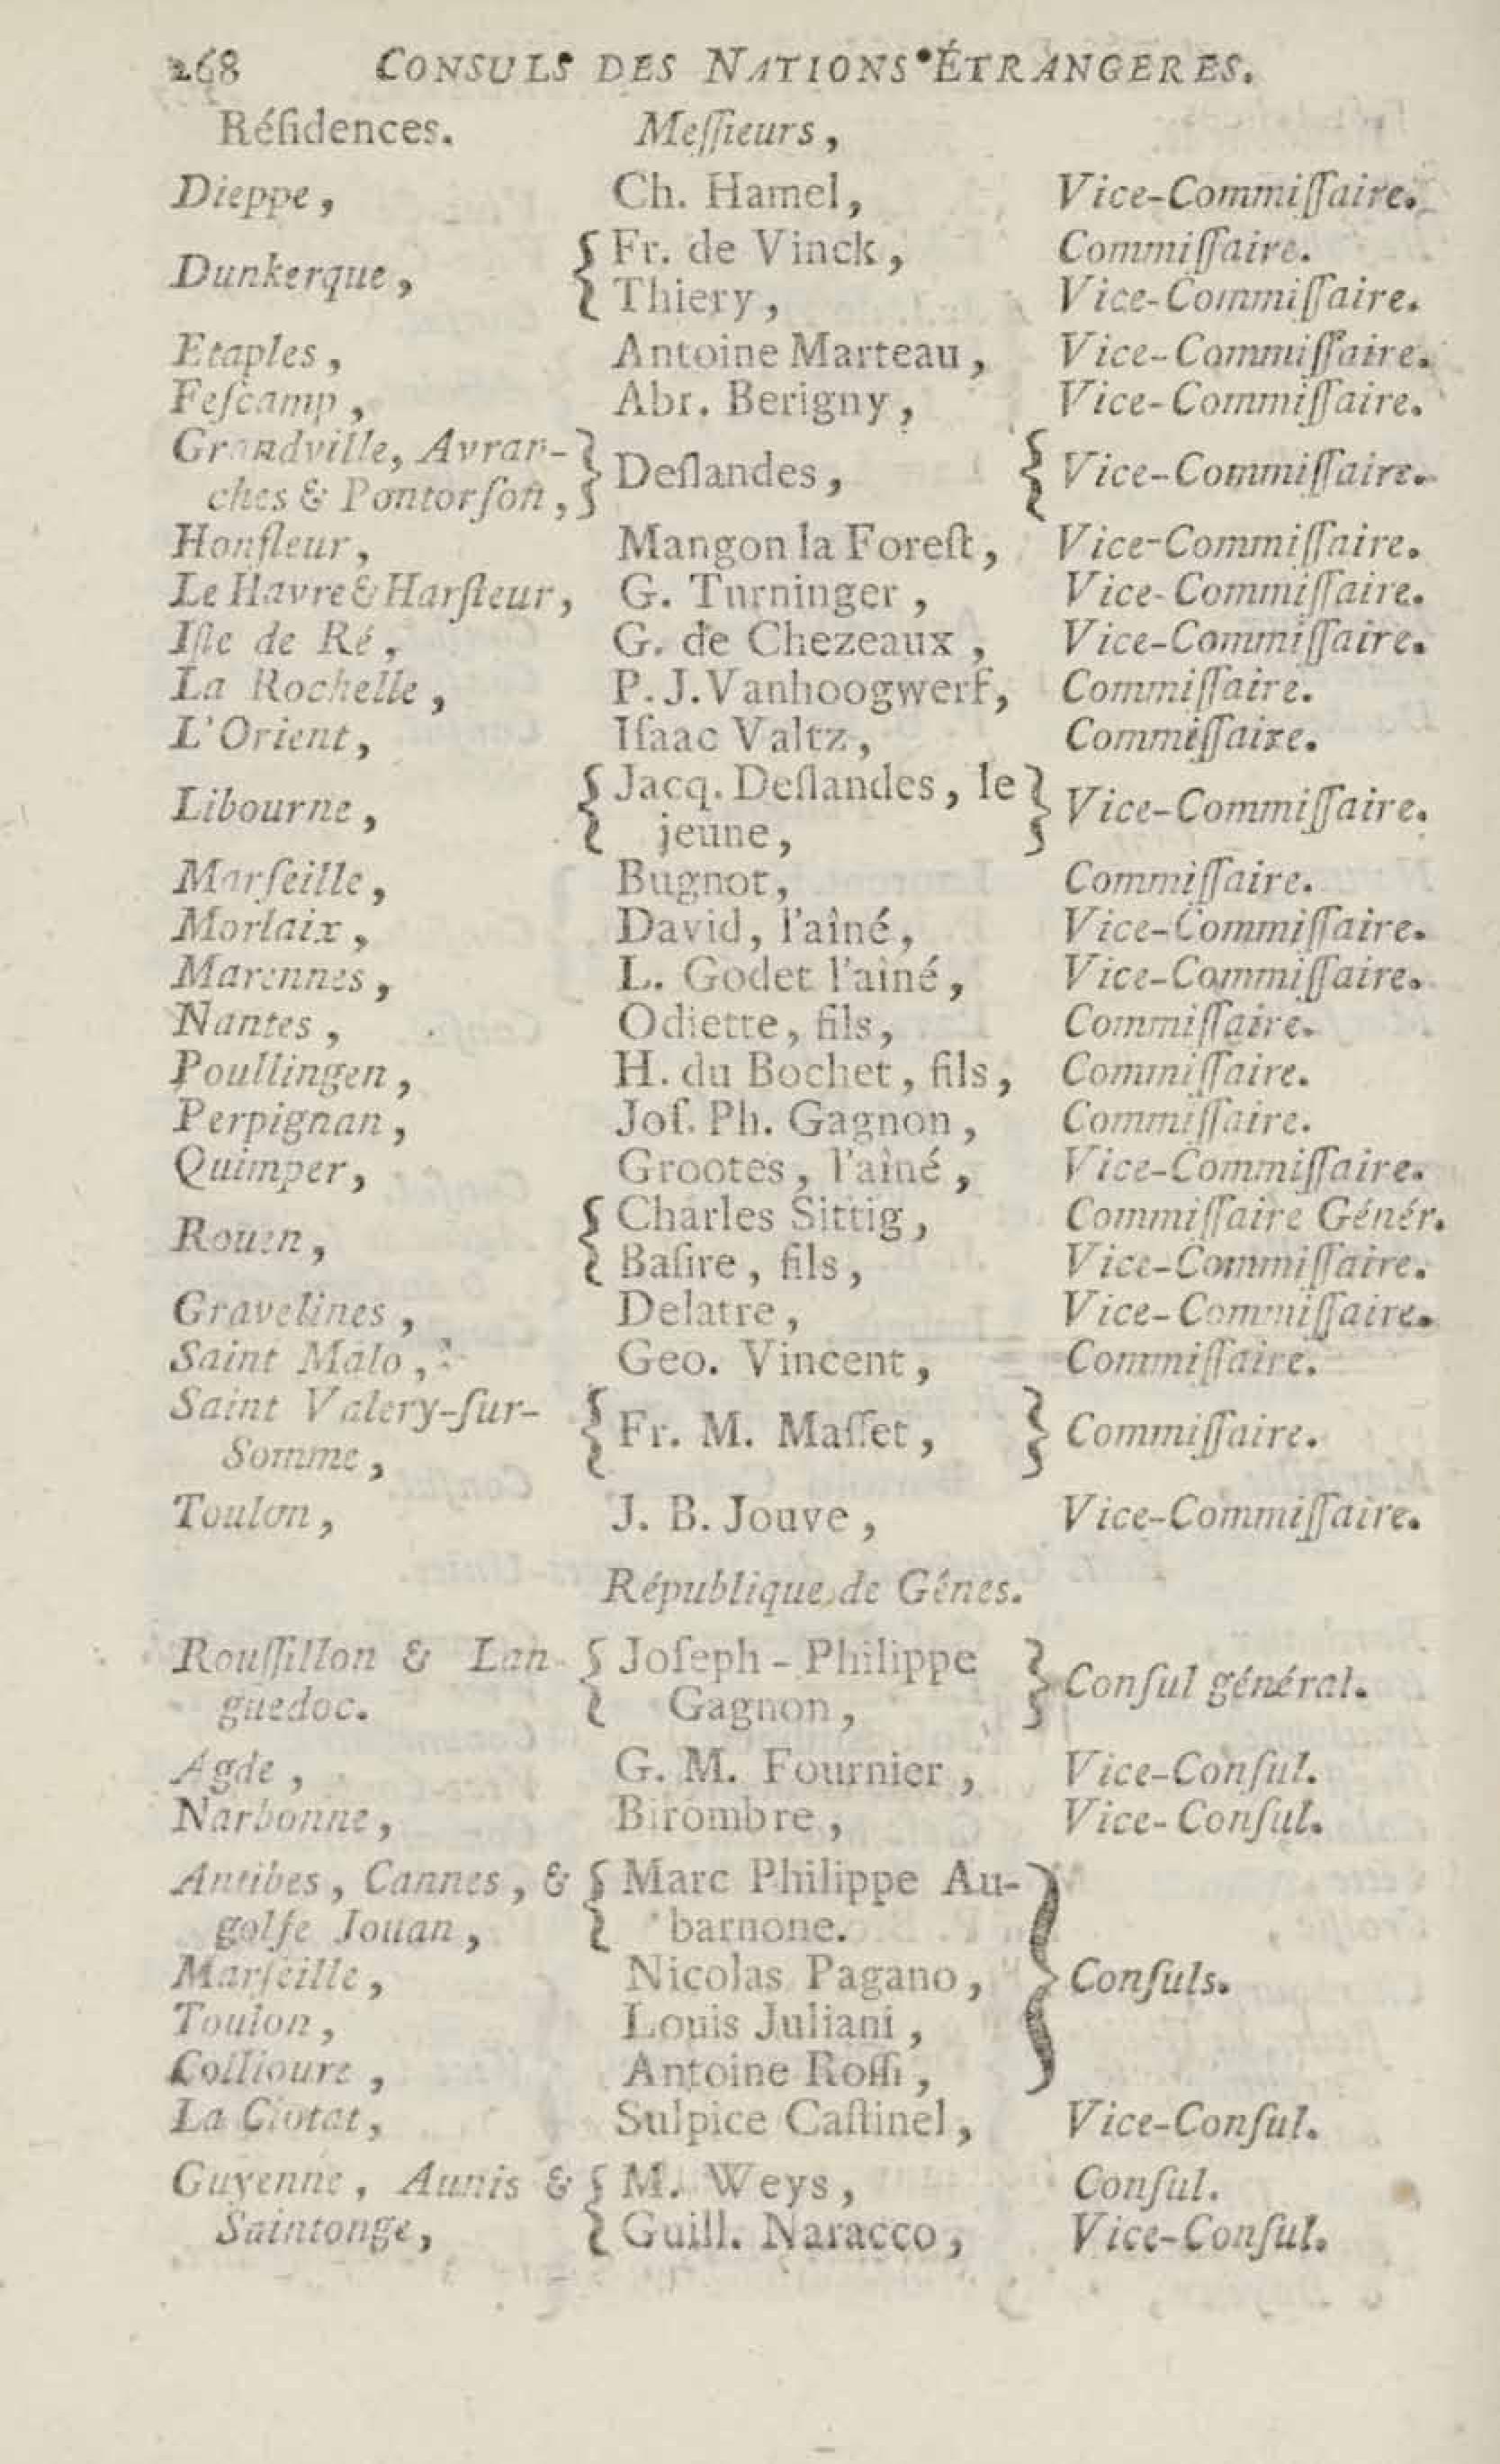 268 CONSULS DES NATIONS ÉTRANGERES.
Réſidences. Meſſieurs,
Dieppe, Ch. Hamel, Vice-Commiſſaire.
Dunkerque, { Fr. de Vinck, Commiſſaire.
{ Thiery, Vice-Commiſſaire.
Etaples, Antoine Marteau, Vice-Commiſſaire.
Feſcamp, Abr. Berigny, Vice-Commiſſaire.
Grandville, Avran-
ches & Pontorſon, } Deſlandes, { Vice-Commiſſaire.
Honfleur, Mangon la Foreſt, Vice-Commiſſaire.
Le Havre & Harfleur, G. Turninger, Vice-Commiſſaire.
Iſle de Ré, G. de Chezeaux, Vice-Commiſſaire.
La Rochelle, P. J. Vanhoogwerf, Commiſſaire.
L'Orient, Iſaac Valtz, Commiſſaire.
Libourne, { Jacq. Deſlandes, le } Vice-Commiſſaire.
jeune,
Marſeille, Bugnot, Commiſſaire.
Morlaix, David, l'aîné, Vice-Commiſſaire.
Marennes, L. Godet l'aîné, Vice-Commiſſaire.
Nantes, Odiette, fils, Commiſſaire.
Poullingen, H. du Bochet, fils, Commiſſaire.
Perpignan, Joſ. Ph. Gagnon, Commiſſaire.
Quimper, Grootes, l'aîné, Vice-Commiſſaire.
Rouen, { Charles Sittig, Commiſſaire Génér.
{ Baſire, fils, Vice-Commiſſaire.
Gravelines, Delatre, Vice-Commiſſaire.
Saint Malo, Geo. Vincent, Commiſſaire.
Saint Valery-ſur-
Somme, { Fr. M. Maſſet, } Commiſſaire.
Toulon, J. B. Jouve, Vice-Commiſſaire.
République de Gênes.
Rouſſillon & Lan- { Joſeph-Philippe } Conſul général.
guedoc. Gagnon,
Agde, G. M. Fournier, Vice-Conſul.
Narbonne, Birombre, Vice-Conſul.
Antibes, Cannes, & { Marc Philippe Au-
golfe Jouan, barnone.
Marſeille, Nicolas Pagano, } Conſuls.
Toulon, Louis Juliani,
Collioure, Antoine Roſſi,
La Ciotat, Sulpice Caſtinel, Vice-Conſul.
Guyenne, Aunis & { M. Weys, Conſul.
Saintonge, { Guill. Naracco, Vice-Conſul.